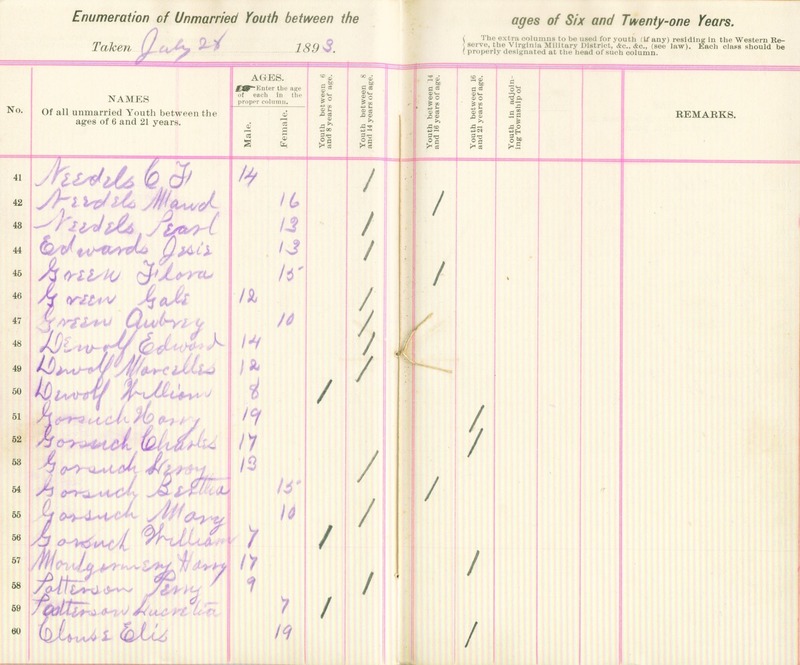 Enumeration of Unmarried Youth between the ages of Six and Twenty-one Years.
Taken July 28 1893.
The extra columns to be used for youth (if any) residing in the Western Re-
serve, the Virginia Military District, &c., &c., (see law). Each class should be
properly designated at the head of such column.
No.
NAMES
Of all unmarried Youth between the
ages of 6 and 21 years.
AGES.
Enter the age
of each in the
proper column.
Male.
Female.
Youth between 6
and 8 years of age.
Youth between 8
and 14 years of age.
Youth between 14
and 16 years of age.
Youth between 16
and 21 years of age.
Youth in adjoin-
ing Township of
REMARKS.
41 Needels C F 14 /
42 Needels Maud 16 /
43 Needels Pearl 13 /
44 Edwards Jesie 13 /
45 Green Flora 15 /
46 Green Gale 12 /
47 Green Aubrey 10 /
48 Dewolf Edward 14 /
49 Dewolf Marcelles 12 /
50 Dewolf William 8 /
51 Gorsuch Harry 19 /
52 Gorsuch Charles 17 /
53 Gorsuch Leroy 13 /
54 Gorsuch Bertha 15 /
55 Gorsuch Mary 10 /
56 Gorsuch William 7 /
57 Montgomery Harry 17 /
58 Patterson Perry 9 /
59 Patterson Lucretia 7 /
60 Clouse Elis 19 /